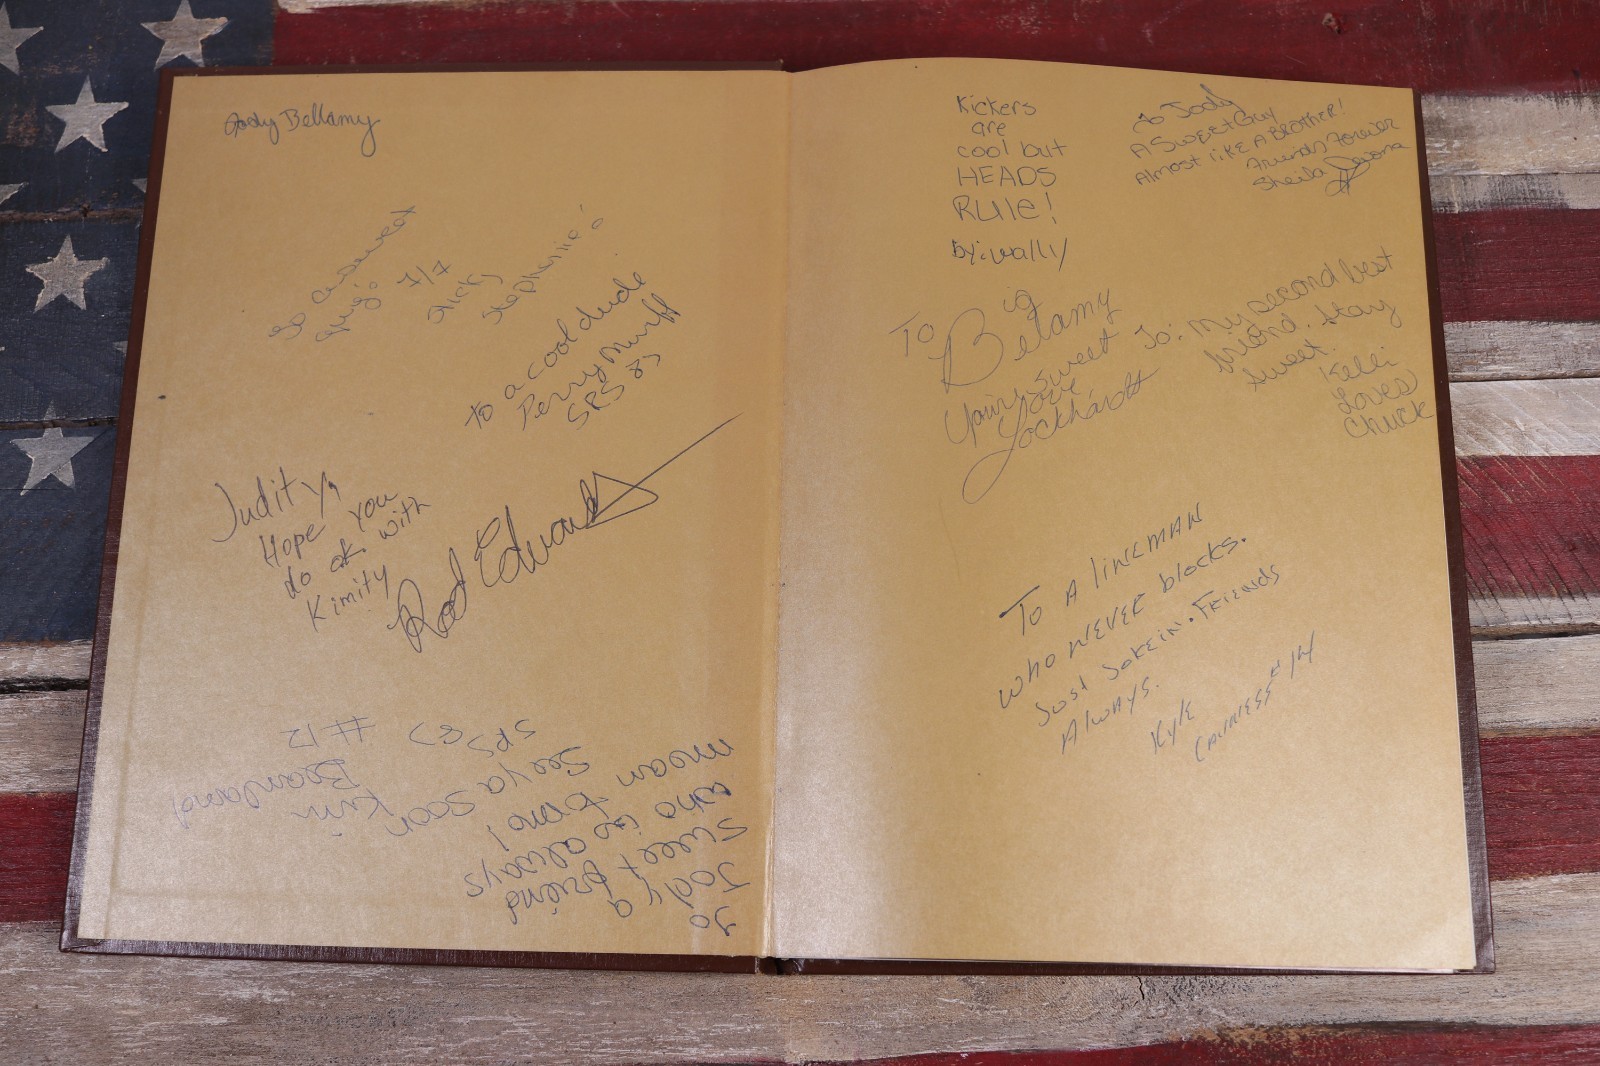 Jody Bellamy
So a sweet
guy! 7/7
Stephanie
To a cool dude
Perry Murff
SRS 83
Judity,
Hope you
do ok. with
Kimity
Rod Edwards
To
Jody a
Sweet friend
who is always
moan to me!
See ya soon
Kim
SRS 83
#12
Kickers
are
cool but
HEADS
RULE!
by: wally
To Jody
A SWEET GUY
Almost liKE A BROTHER!
Friends Forever
Sheila
To Big
Bellamy
Your sweet
love
Lockhardt
To: My second best
friend. Stay
sweet.
Kelli
Loves
Chuck
To A linEMAN
who NEVER blocks.
Just JoKEin. FRIENds
AlwAys.
Kyle
#14